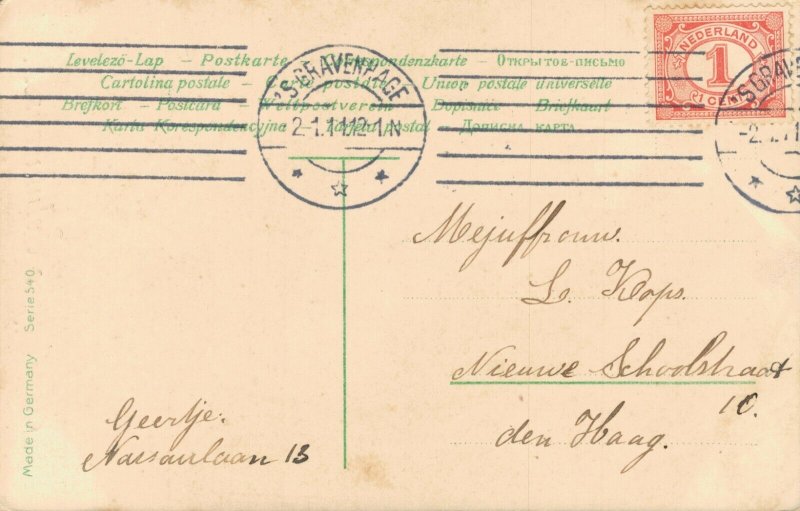 Levelező-Lap — Postkarte — Korrespondenzkarte — Открытое-письмо
Cartolina postale — Carte postale — Union postale universelle
Brefkort — Postcard — Weltpostverein — Dopisnice — Briefkaart
Karta Korespondencyjna — Tarjeta postal — Дописна карта
'S-GRAVENHAGE
2.1.11 12-1.N
NEDERLAND
1
1 CENT
'S-GRAVE
Mejuffrouw.
L. Kops.
Nieuwe Schoolstraat
10.
den Haag.
Geertje.
Nassaulaan 13
Made in Germany Serie 540